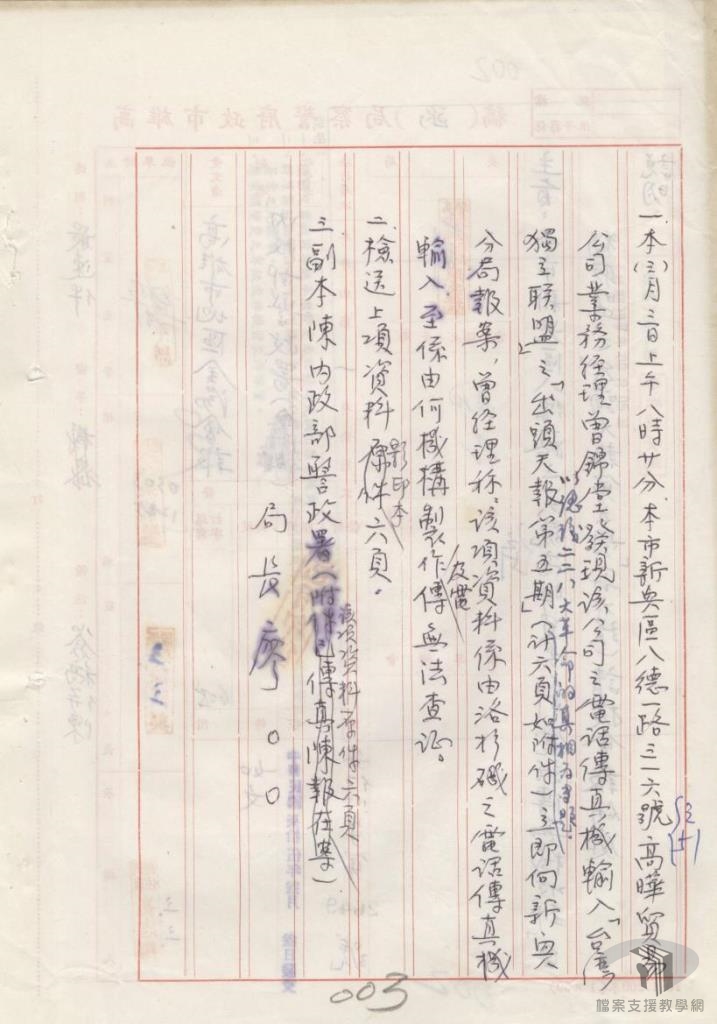 說明
一、本(三)月三日上午八時廿分,本市新興區八德一路三一六號高曄貿易
公司業務經理曾錦堂發現該公司之電話傳真機輸入「台灣
獨立聯盟」之「出頭天報第五期」(計六頁如附件)立即向新興
二二八大革命的真相為專題
分局報案,曾經理称:該項資料係由洛杉磯之電話傳真機
輸入,至係由何機構製作傳無法查証。
及電
二、檢送上項資料原件六頁。
影印本
三、副本陳內政部警政署(附件已傳真陳報在案)
該項資料原件六頁
局長廖○○
003
檔案支援教學網